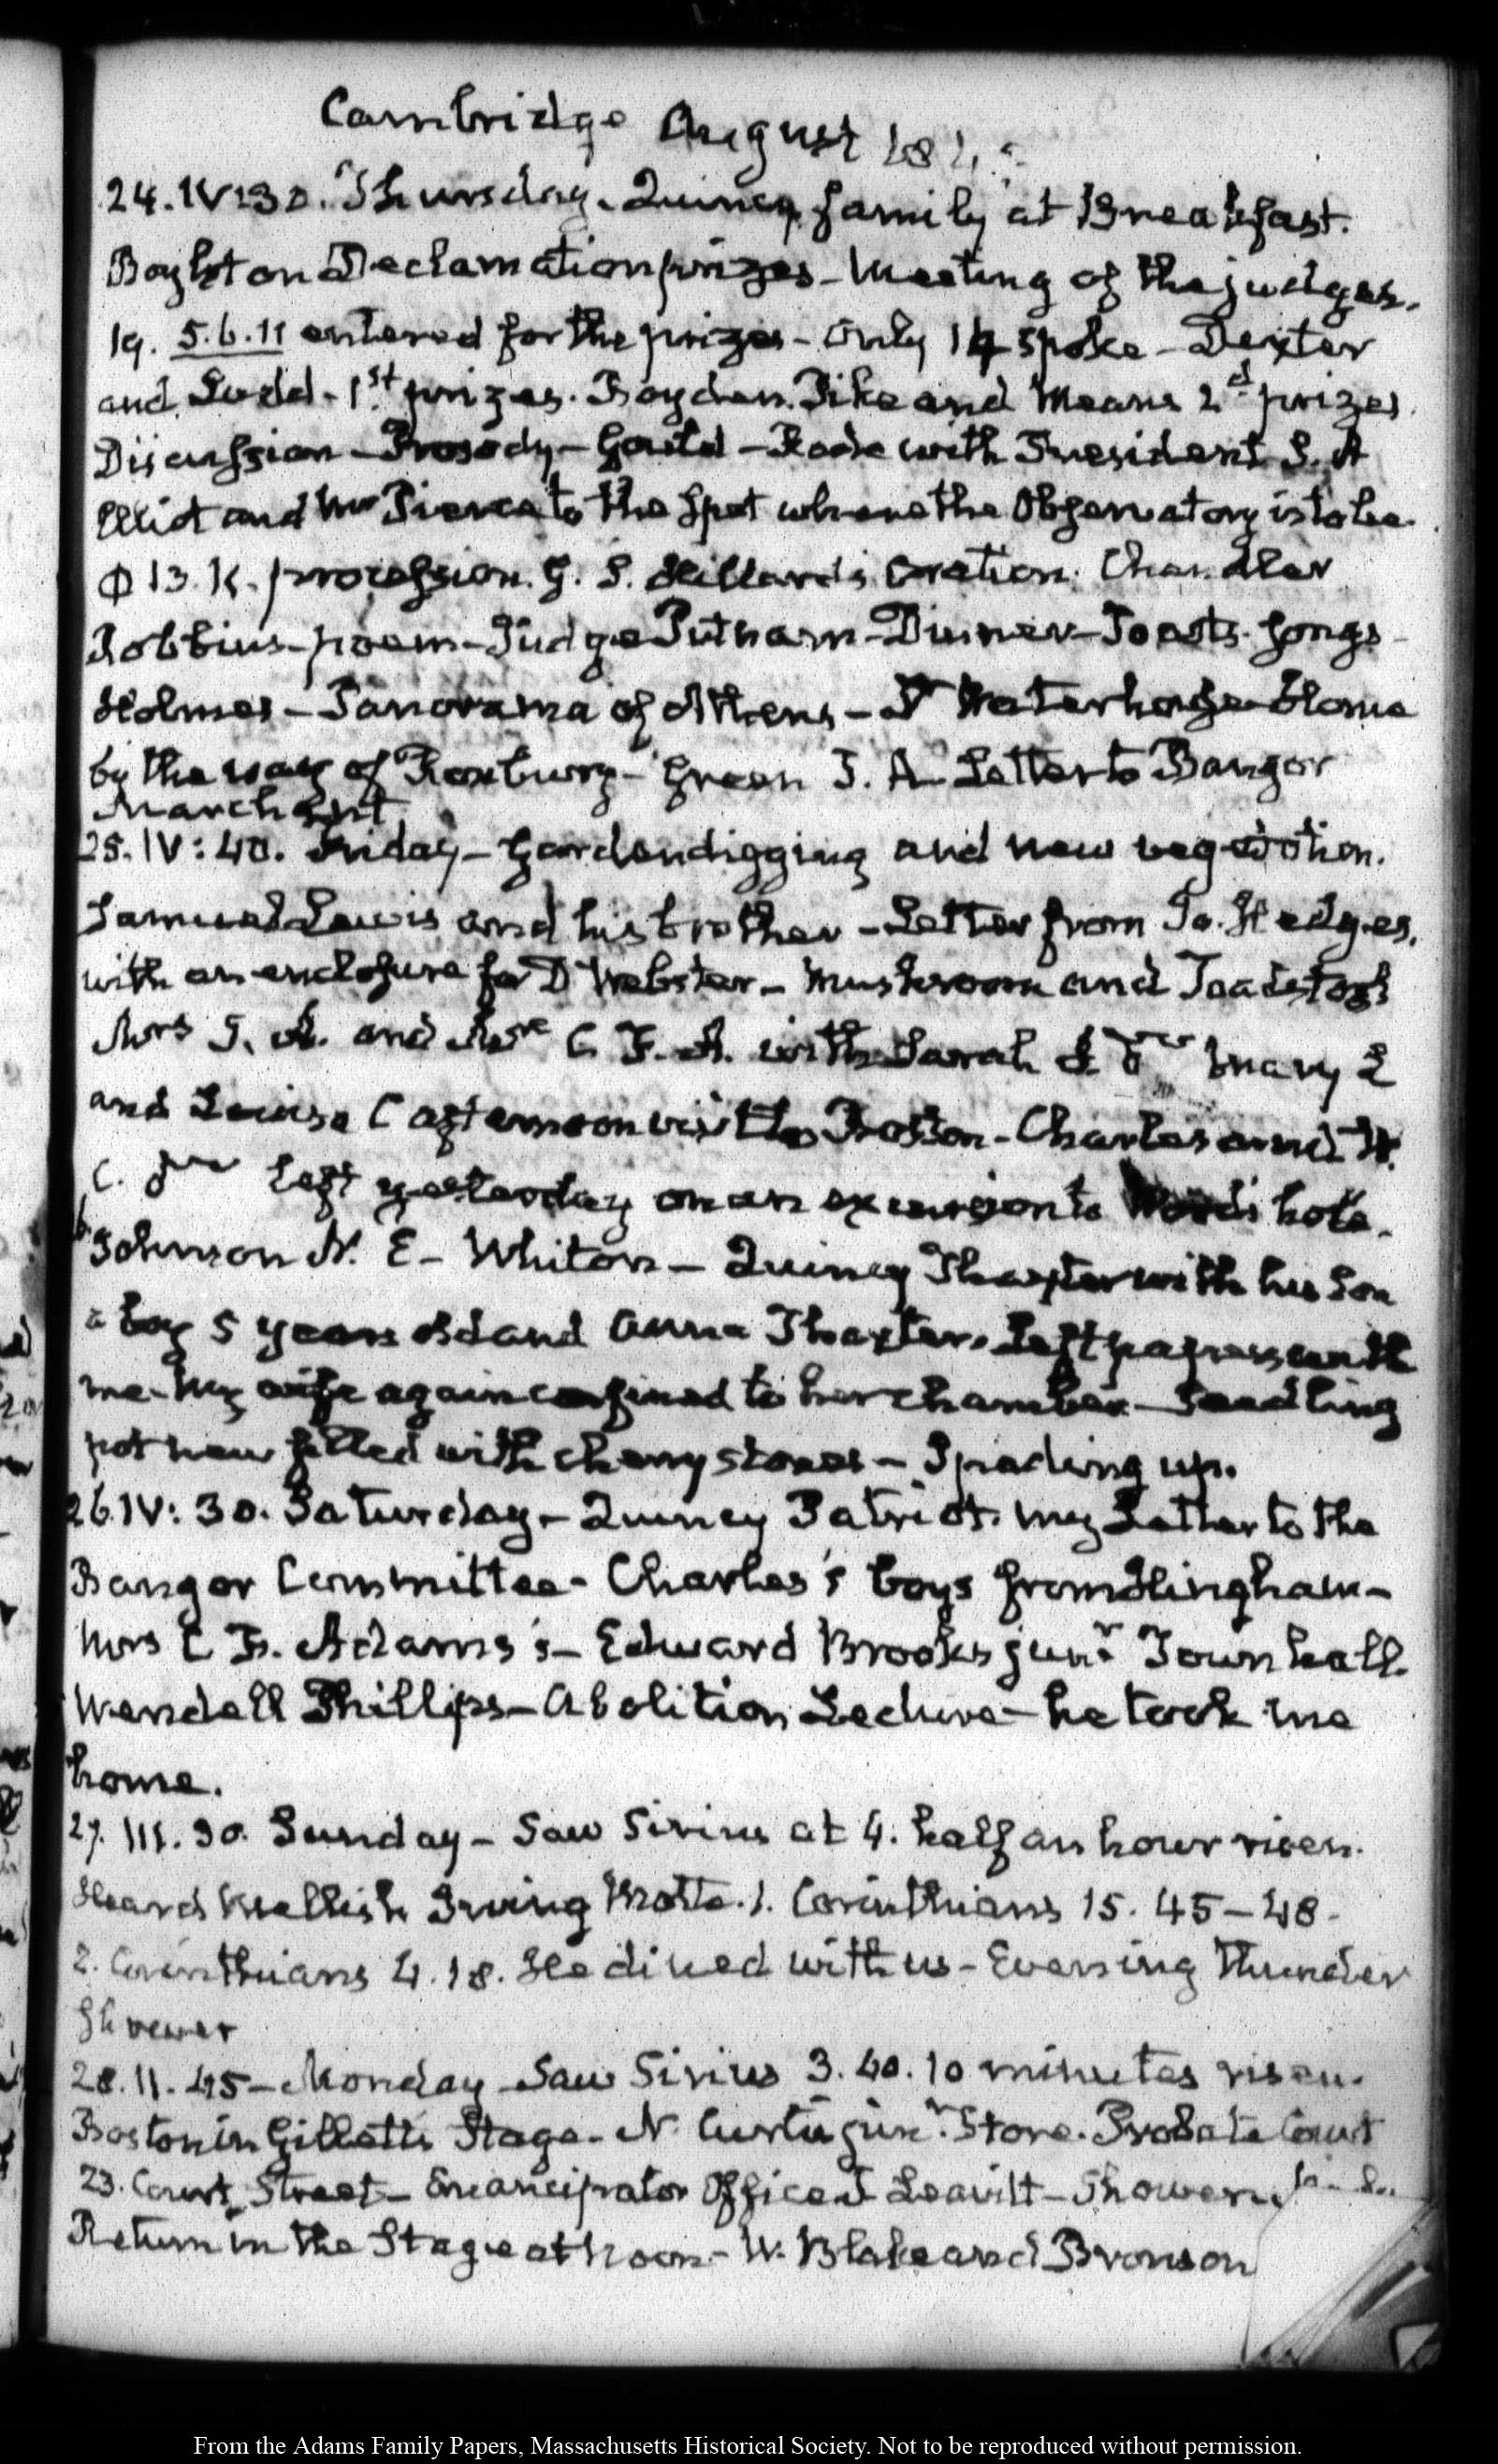 Cambridge August 184
24. IV:30. Thursday. Quincy family at Breakfast.
Boylston Declamation prizes - Meeting of the judges.
19. 5.6.11 entered for the prizes - Only 14 spoke - Dexter
and Ladd - 1st prizes. Boyden. Pike and Means 2d prizes
Discussion - Prosody - Gould - Rode with President S. A
Elliot and Mr Pierce to the Spot where the Observatory is to be
Φ B. K. procession. G. S. Hillard's Oration. Chandler
Robbins - poem - Judge Putnam - Dinner - Toasts. Songs -
Holmes - Panorama of Athens - Dr Waterhouse - Home
by the way of Roxbury - Green J. A. Letter to Bangor
Marchant
25. IV:40. Friday - Garden digging and new vegetation.
Samuel Lewis and his brother - Letter from Jo. Hedges,
with an enclosure for D Webster - Mushroom and Toadstools
Mrs J. A. and Mrs C. F. A. with Sarah & Mary L
and Louisa C afternoon visit to Boston - Charles and
C. junr left yesterday on an excursion to hole.
Johnson N. E - Whiton - Quincy Thaxter with his Son
a boy 5 years old and Anna Thaxter. Left papers with
me - My wife again confined to her chamber - Seedling
pot new filled with cherry stones - Spading up.
26. IV:30. Saturday - Quincy Patriot. My Letter to the
Bangor Committee - Charles's boys from Hingham -
Mrs C F. Adams's - Edward Brooks junr Town hall.
Wendell Phillips - Abolition Lecture - he took me
home.
27. III.30. Sunday - Saw Sirius at 4. half an hour risen.
Heard Mellish Irving Motte. 1. Corinthians 15. 45-48.
2. Corinthians 4.18. He dined with us - Evening Thunder
Shower
28. II.45 - Monday - Saw Sirius 3.40. 10 minutes risen.
Boston in Gillett's Stage - N. Curtis junr. Store. Probate Court
23. Court Street - Emancipator Office J Leavitt - Shower
Return in the Stage at noon - W. Blake and Bronson
From the Adams Family Papers, Massachusetts Historical Society. Not to be reproduced without permission.